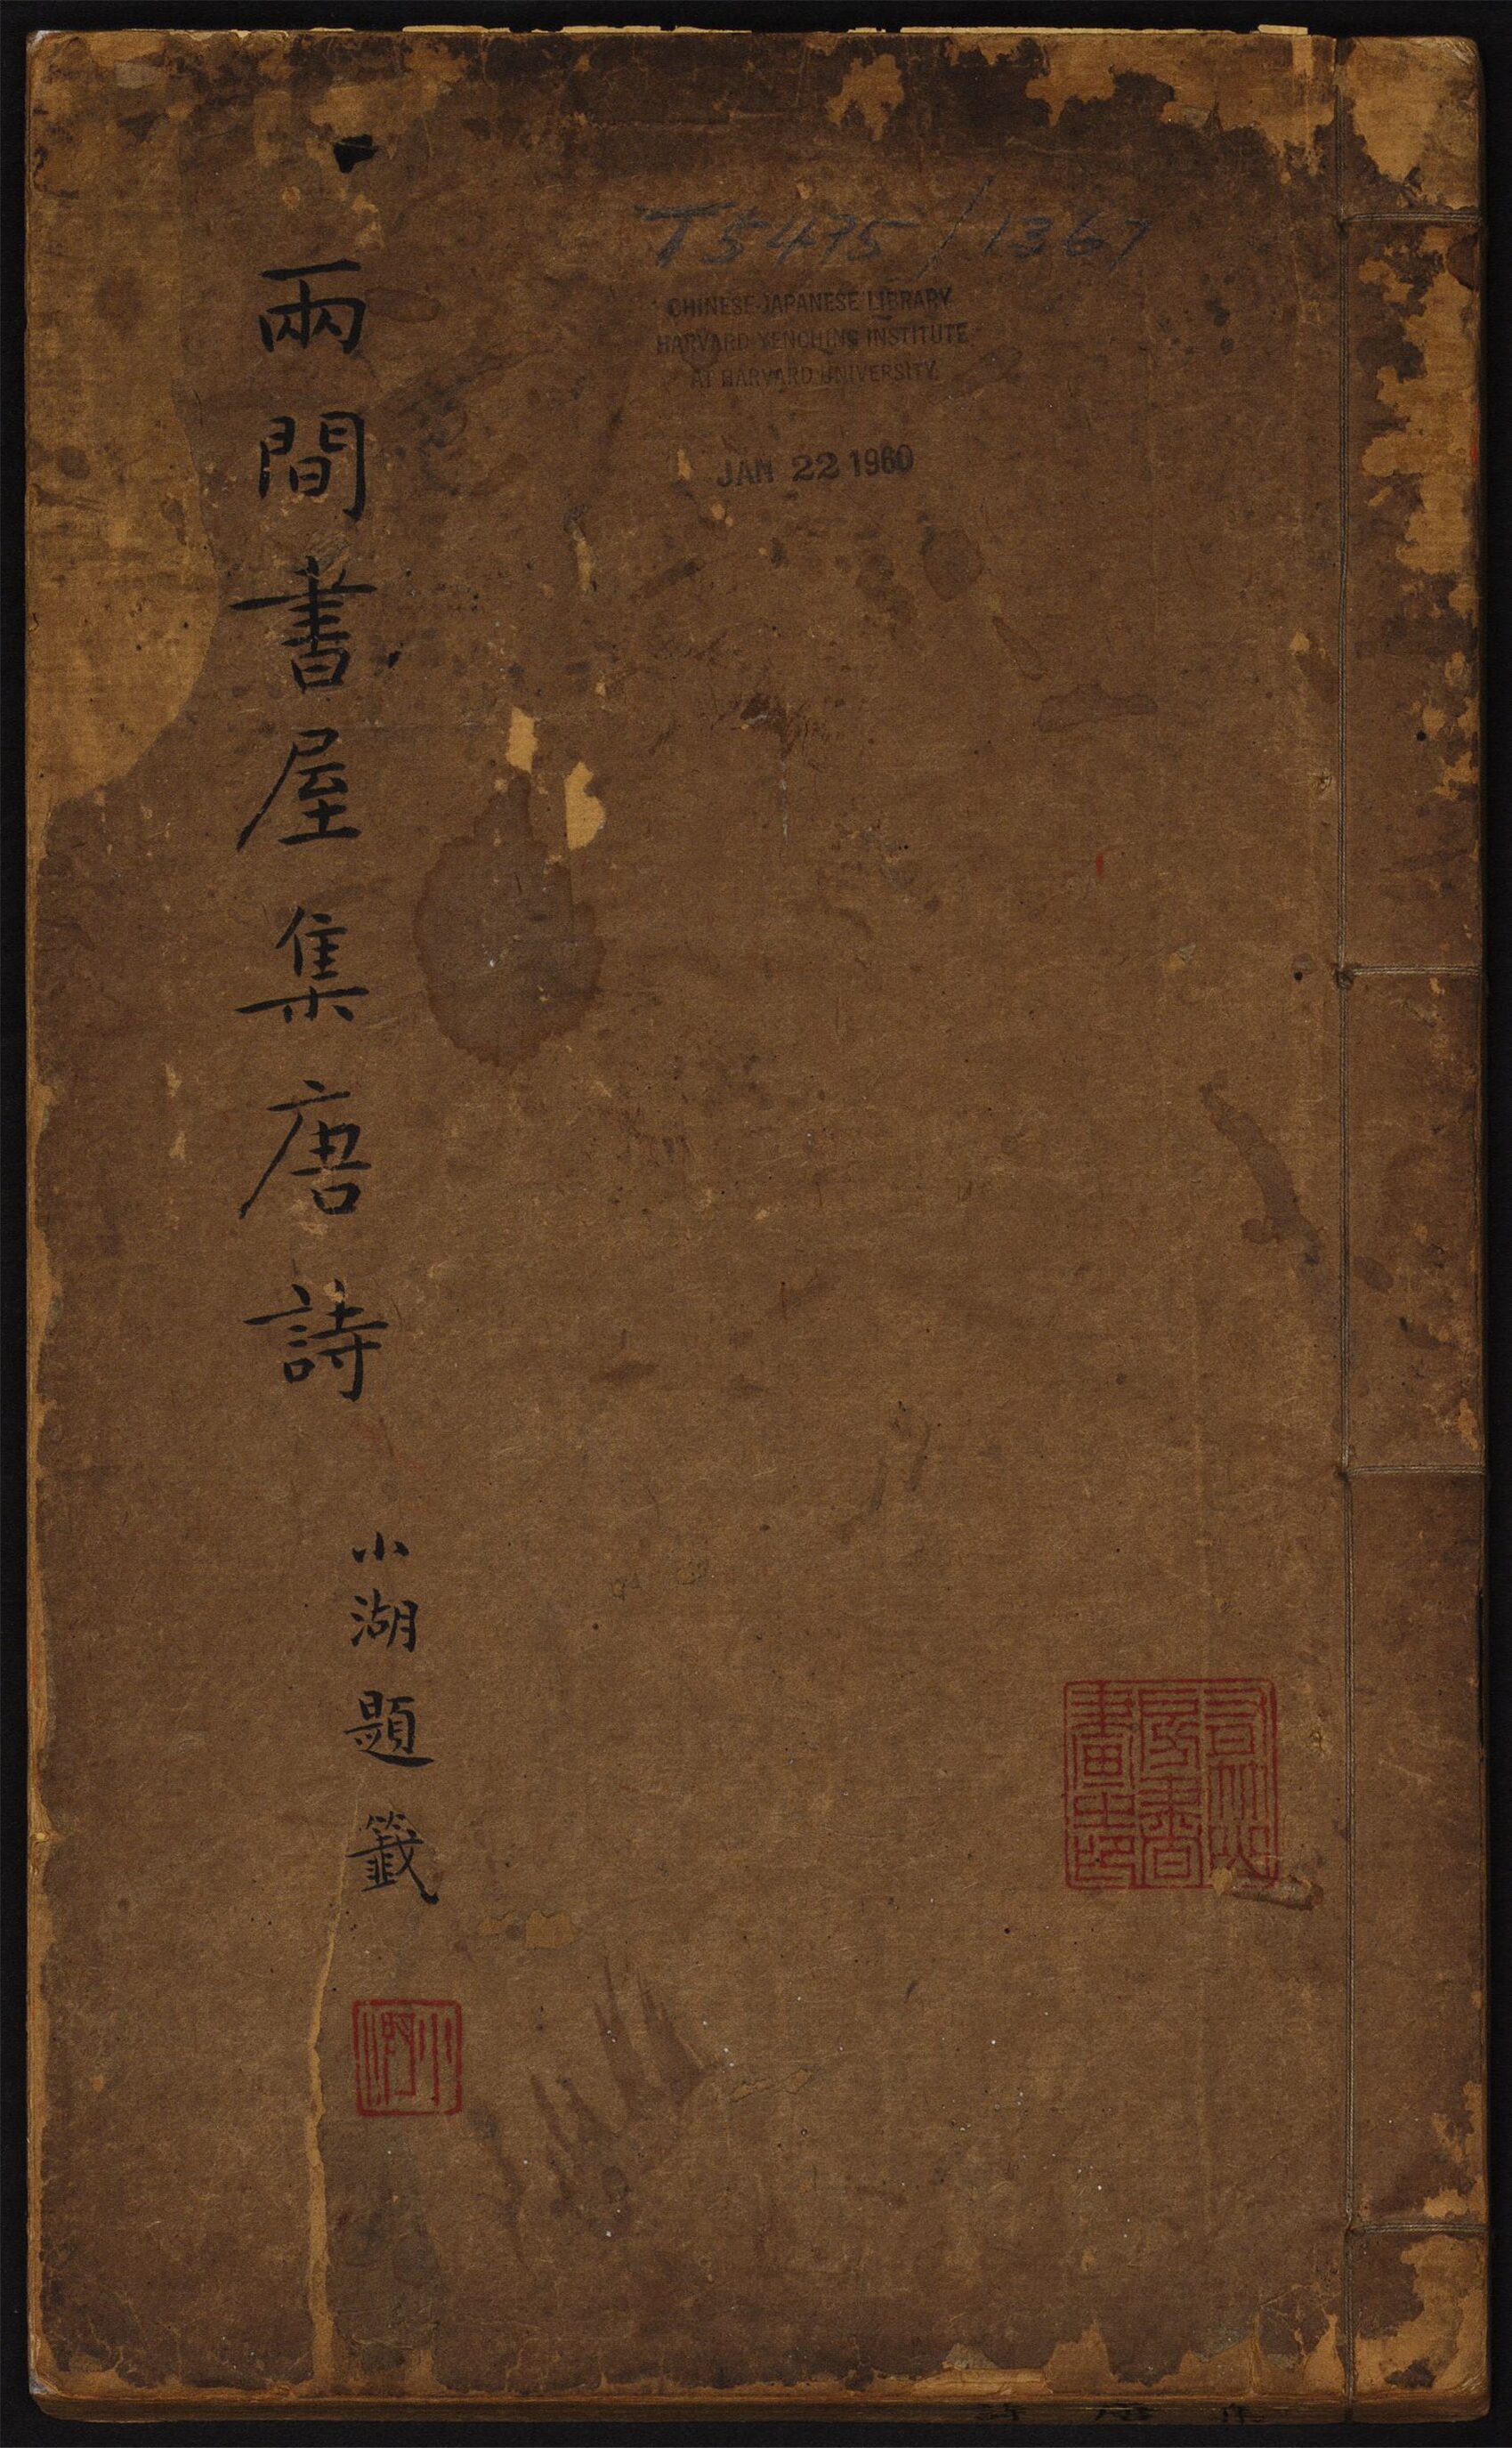 T5475/1367
CHINESE-JAPANESE LIBRARY
HARVARD-YENCHING INSTITUTE
AT HARVARD UNIVERSITY
JAN 22 1960
兩間書屋集唐詩
小湖題籤
小湖